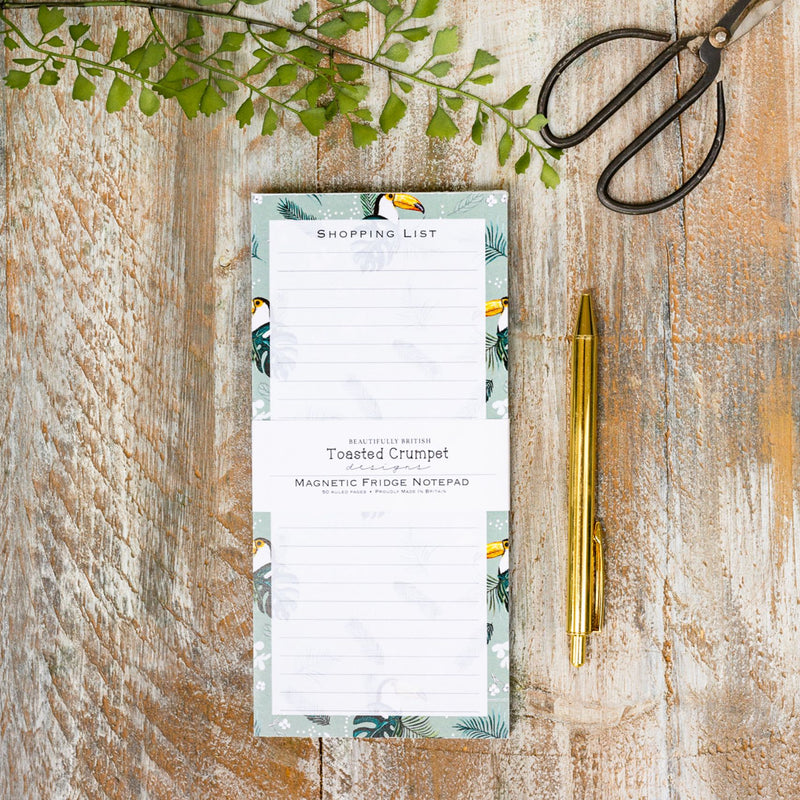 Shopping List
BEAUTIFULLY BRITISH
Toasted Crumpet
designs
Magnetic Fridge Notepad
50 ruled pages • Proudly Made in Britain